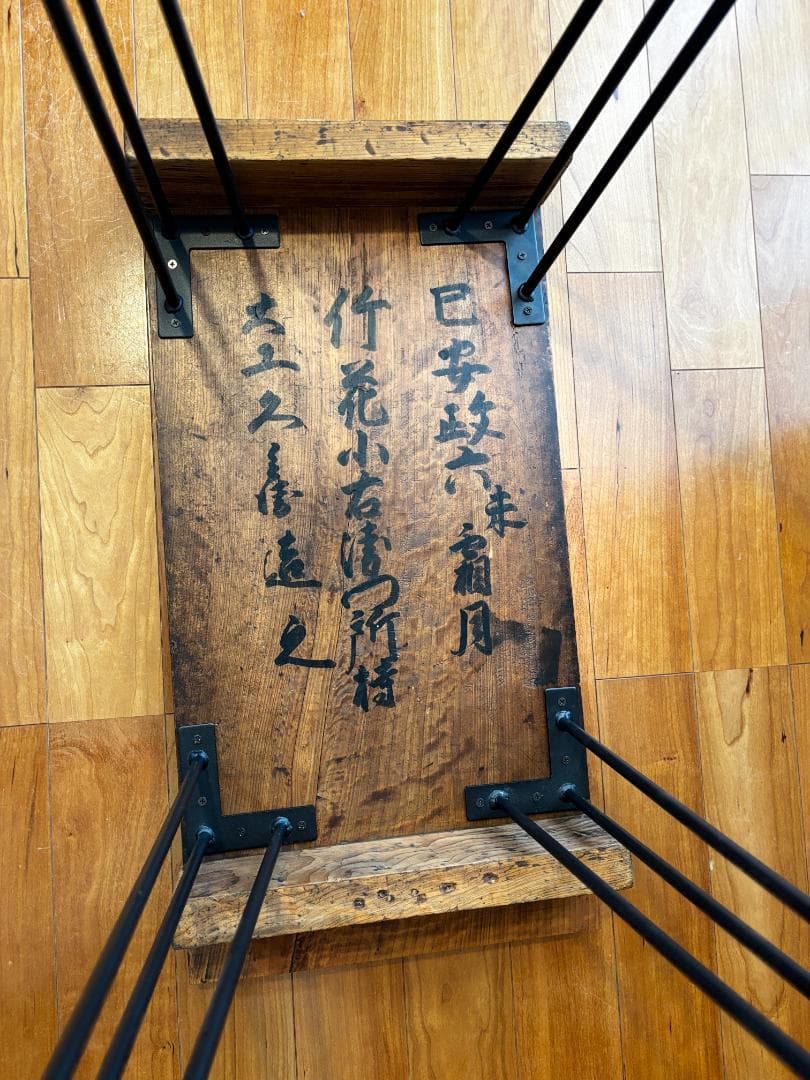 巳安政六未霜月
竹花小右衛門所持
大工久兵衛造之